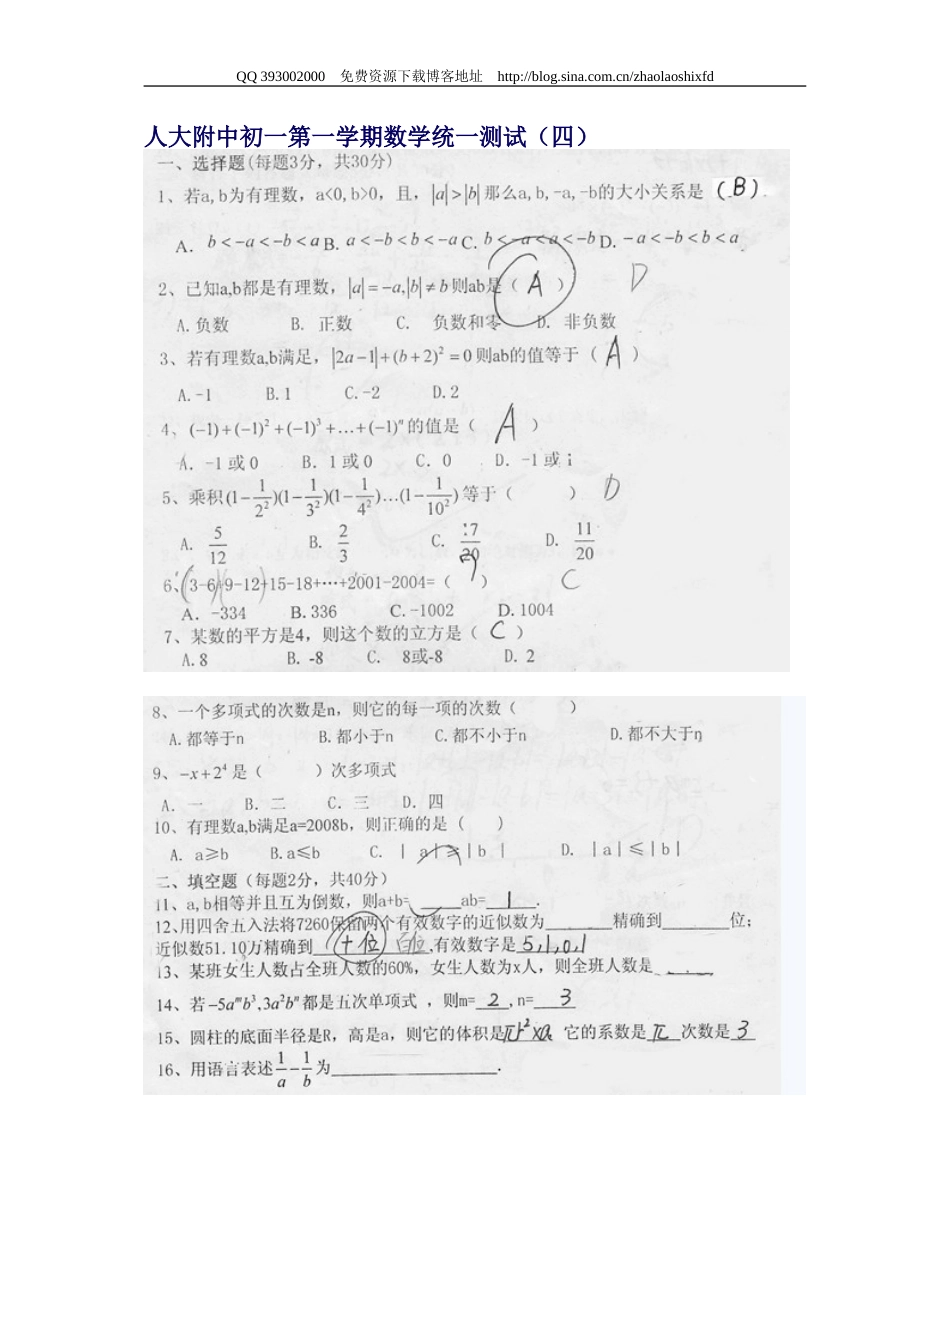 QQ 393002000 免费资源下载博客地址 http://blog.sina.com.cn/zhaolaoshixfd
人大附中初一第一学期数学统一测试（四）
一、选择题(每题3分，共30分)
1、若a,b为有理数，a<0,b>0，且，|a|>|b| 那么a,b,-a,-b的大小关系是 (B)
A. b<-a<-b<a B. a<-b<b<-a C. b<-a<a<-b D. -a<-b<b<a
2、已知a,b都是有理数，|a|=-a,|b|≠b 则ab是（ A ） D
A.负数 B. 正数 C. 负数和零 D. 非负数
3、若有理数a,b满足，|2a-1|+(b+2)²=0 则ab的值等于（ A ）
A.-1 B.1 C.-2 D.2
4、(-1)+(-1)²+(-1)³+…+(-1)ⁿ 的值是（ A ）
A. -1 或 0 B. 1 或 0 C. 0 D. -1 或 1
5、乘积(1-1/2²)(1-1/3²)(1-1/4²)…(1-1/10²) 等于（ ） D
A. 5/12 B. 2/3 C. 17/20 D. 11/20
6、3-6+9-12+15-18+…+2001-2004=（ ） C
A. -334 B. 336 C. -1002 D. 1004
7、某数的平方是4，则这个数的立方是（ C ）
A.8 B. -8 C. 8或-8 D. 2
8、一个多项式的次数是n，则它的每一项的次数（ ）
A.都等于n B.都小于n C.都不小于n D.都不大于n
9、-x+2⁴ 是（ ）次多项式
A. 一 B. 二 C. 三 D. 四
10、有理数a,b满足a=2008b，则正确的是（ ）
A. a≥b B.a≤b C. |a|≥|b| D. |a|≤|b|
二、填空题（每题2分，共40分）
11、a,b相等并且互为倒数，则a+b=____ab= 1 .
12、用四舍五入法将7260保留两个有效数字的近似数为______精确到______位；
近似数51.10万精确到 十位 百位 ,有效数字是 5,1,0,1
13、某班女生人数占全班人数的60%，女生人数为x人，则全班人数是____
14、若 -5aᵐb³,3a²bⁿ 都是五次单项式 ，则m= 2 ,n= 3
15、圆柱的底面半径是R，高是a，则它的体积是πr²×a 它的系数是 π 次数是 3
16、用语言表述 1/a - 1/b 为______________.